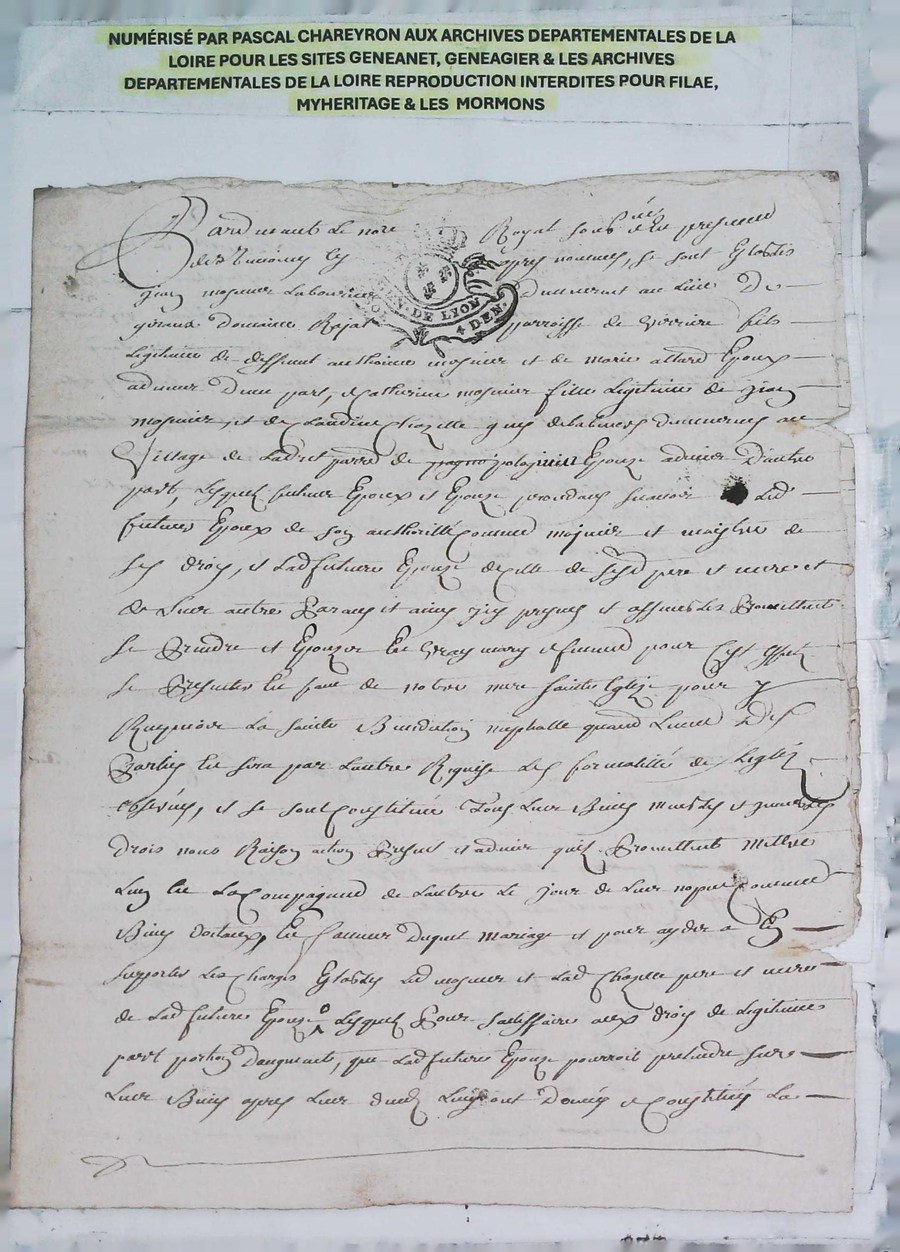 NUMÉRISÉ PAR PASCAL CHAREYRON AUX ARCHIVES DEPARTEMENTALES DE LA
LOIRE POUR LES SITES GENEANET, GENEAGIER & LES ARCHIVES
DEPARTEMENTALES DE LA LOIRE REPRODUCTION INTERDITES POUR FILAE,
MYHERITAGE & LES MORMONS
Pardevant Le nore Royal soubné Et En presence
des temoins cy apres nommés, se sont Establis
jean mosnier Laboureur Demeurant au Lieu De
GEN. DE LYON
4 DEN.
domaine parroisse de verriere fils
Legitime de deffunt anthoine mosnier et de marie Epoux
advenir Dune part, et catherine mosnier fille Legitime de jean
mosnier, et de Claudine Chazelle demeurants au
Village de Epouze advenir Dautre
part, Lesquels futurs Epoux et Epouze scavoir Led
futur Epoux de son authorité Comme majeur et maistre de
ses droys, et Lad future Epouze de celle de sesd pere et mere et
de Leur autres Parans et amis icy presens et assemblés Promettent
se Prendre et Epouzer En vray mary et femme pour Cest effet
se Presenter En face de notre mere sainte Eglize pour y
Recepvoir La sainte Benediction nuptialle quand Lune Des
Parties En sera par Lautre Requise Les formalités de Leglize
observées, et se sont Constitués Tous Leur Biens meubles et immeubles
drois noms Raison action Present et advenir quils Promettent Mettre
Lun En La Compagnie de Lautre Le jour de Leur nopces Comme
Biens dotaux, En faveur Duquel mariage et pour ayder a En
supporter Les Charges Establis Led mosnier et Lad Chazelle pere et mere
de Lad future Epouze Lesquels Pour satisfaire aux droys de Legitime
part portion Daugment, que Lad future Epouze pourroit pretendre sur
Leur Biens apres Leur deces Luy ont Donnés et Constitués La